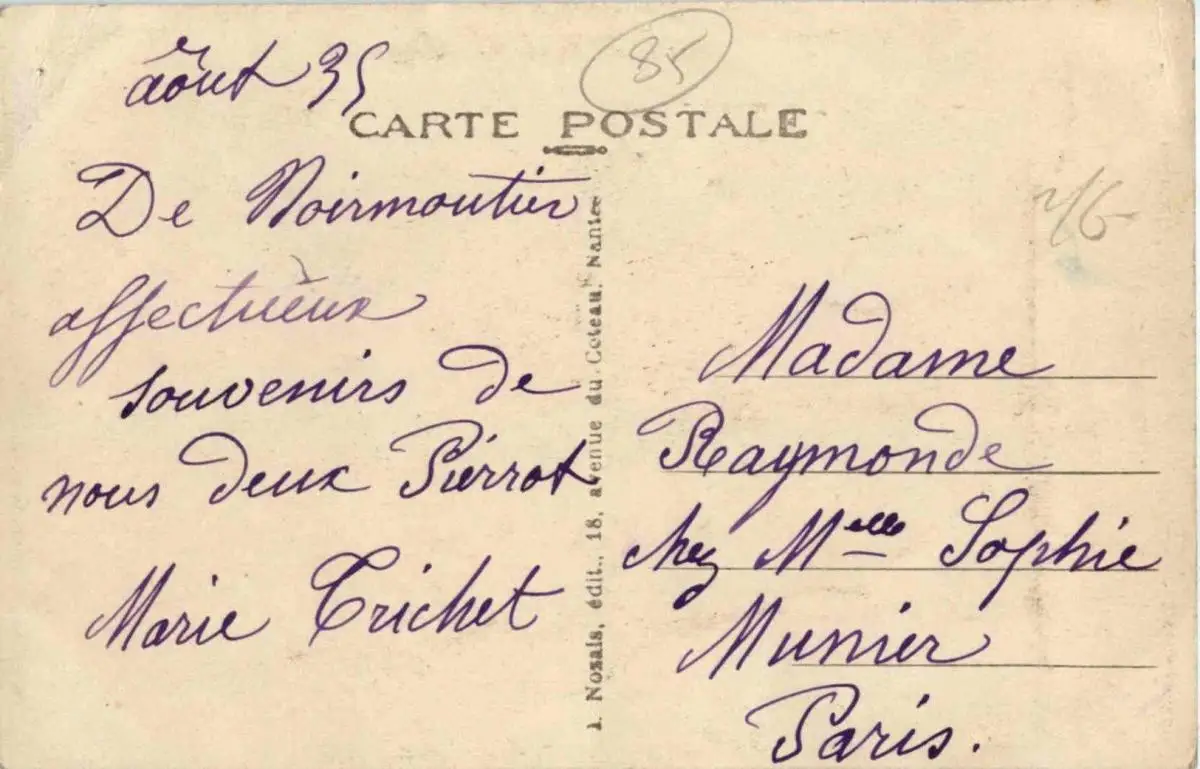 août 35
85
CARTE POSTALE
De Noirmoutier
affectueux
souvenirs de
nous deux Pierrot
Marie Trichet
A. Nozais, édit., 18, avenue du Coteau. Nantes
Madame
Raymonde
chez Melle Sophie
Munier
Paris.